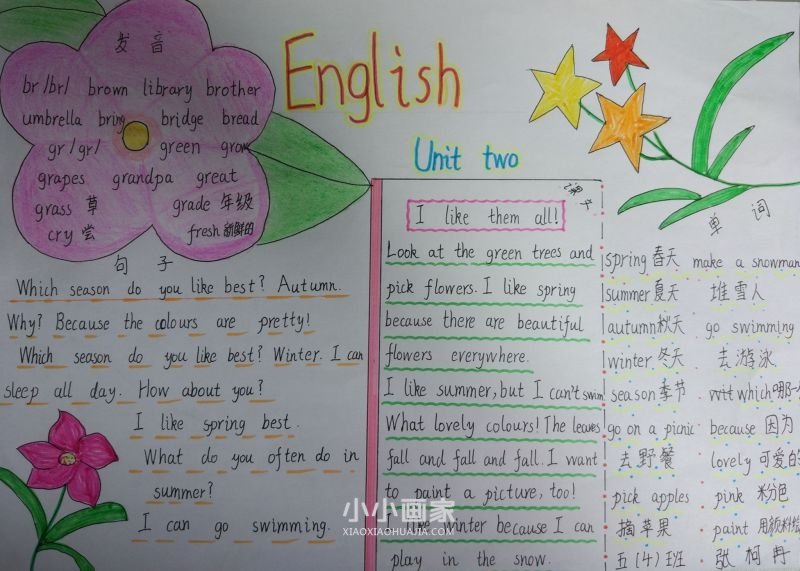 English
Unit two
发 音
br/br/ brown library brother
umbrella bring bridge bread
gr/gr/ green grow
grapes grandpa great
grass 草 grade 年级
cry 尝 fresh 新鲜的
句 子
Which season do you like best? Autumn.
Why? Because the colours are pretty!
Which season do you like best? Winter. I can
sleep all day. How about you?
I like spring best.
What do you often do in
summer?
I can go swimming.
课文
I like them all!
Look at the green trees and
pick flowers. I like spring
because there are beautiful
flowers everywhere.
I like summer, but I can't swim
What lovely colours! The leaves
fall and fall and fall. I want
to paint a picture, too!
I like winter because I can
play in the snow.
单 词
spring 春天 make a snowman
summer 夏天 堆雪人
autumn 秋天 go swimming
winter 冬天 去游泳
season 季节 which 哪一
go on a picnic because 因为
去野餐 lovely 可爱的
pick apples pink 粉色
摘苹果 paint 用颜料绘
五(4)班 张柯冉
小小画家
XIAOXIAOHUAJIA.COM